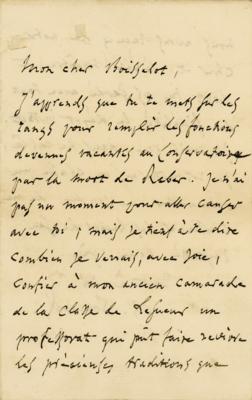 Mon cher Boisselot,
J'apprends que tu te mets sur les
rangs pour remplir les fonctions
devenues vacantes au Conservatoire
par la mort de Reber. Je n'ai
pas un moment pour aller causer
avec toi ; mais je tiens à te dire
combien je verrais, avec joie,
confier à mon ancien camarade
de la Classe de Lesueur un
professorat qui pût faire revivre
les précieuses traditions que